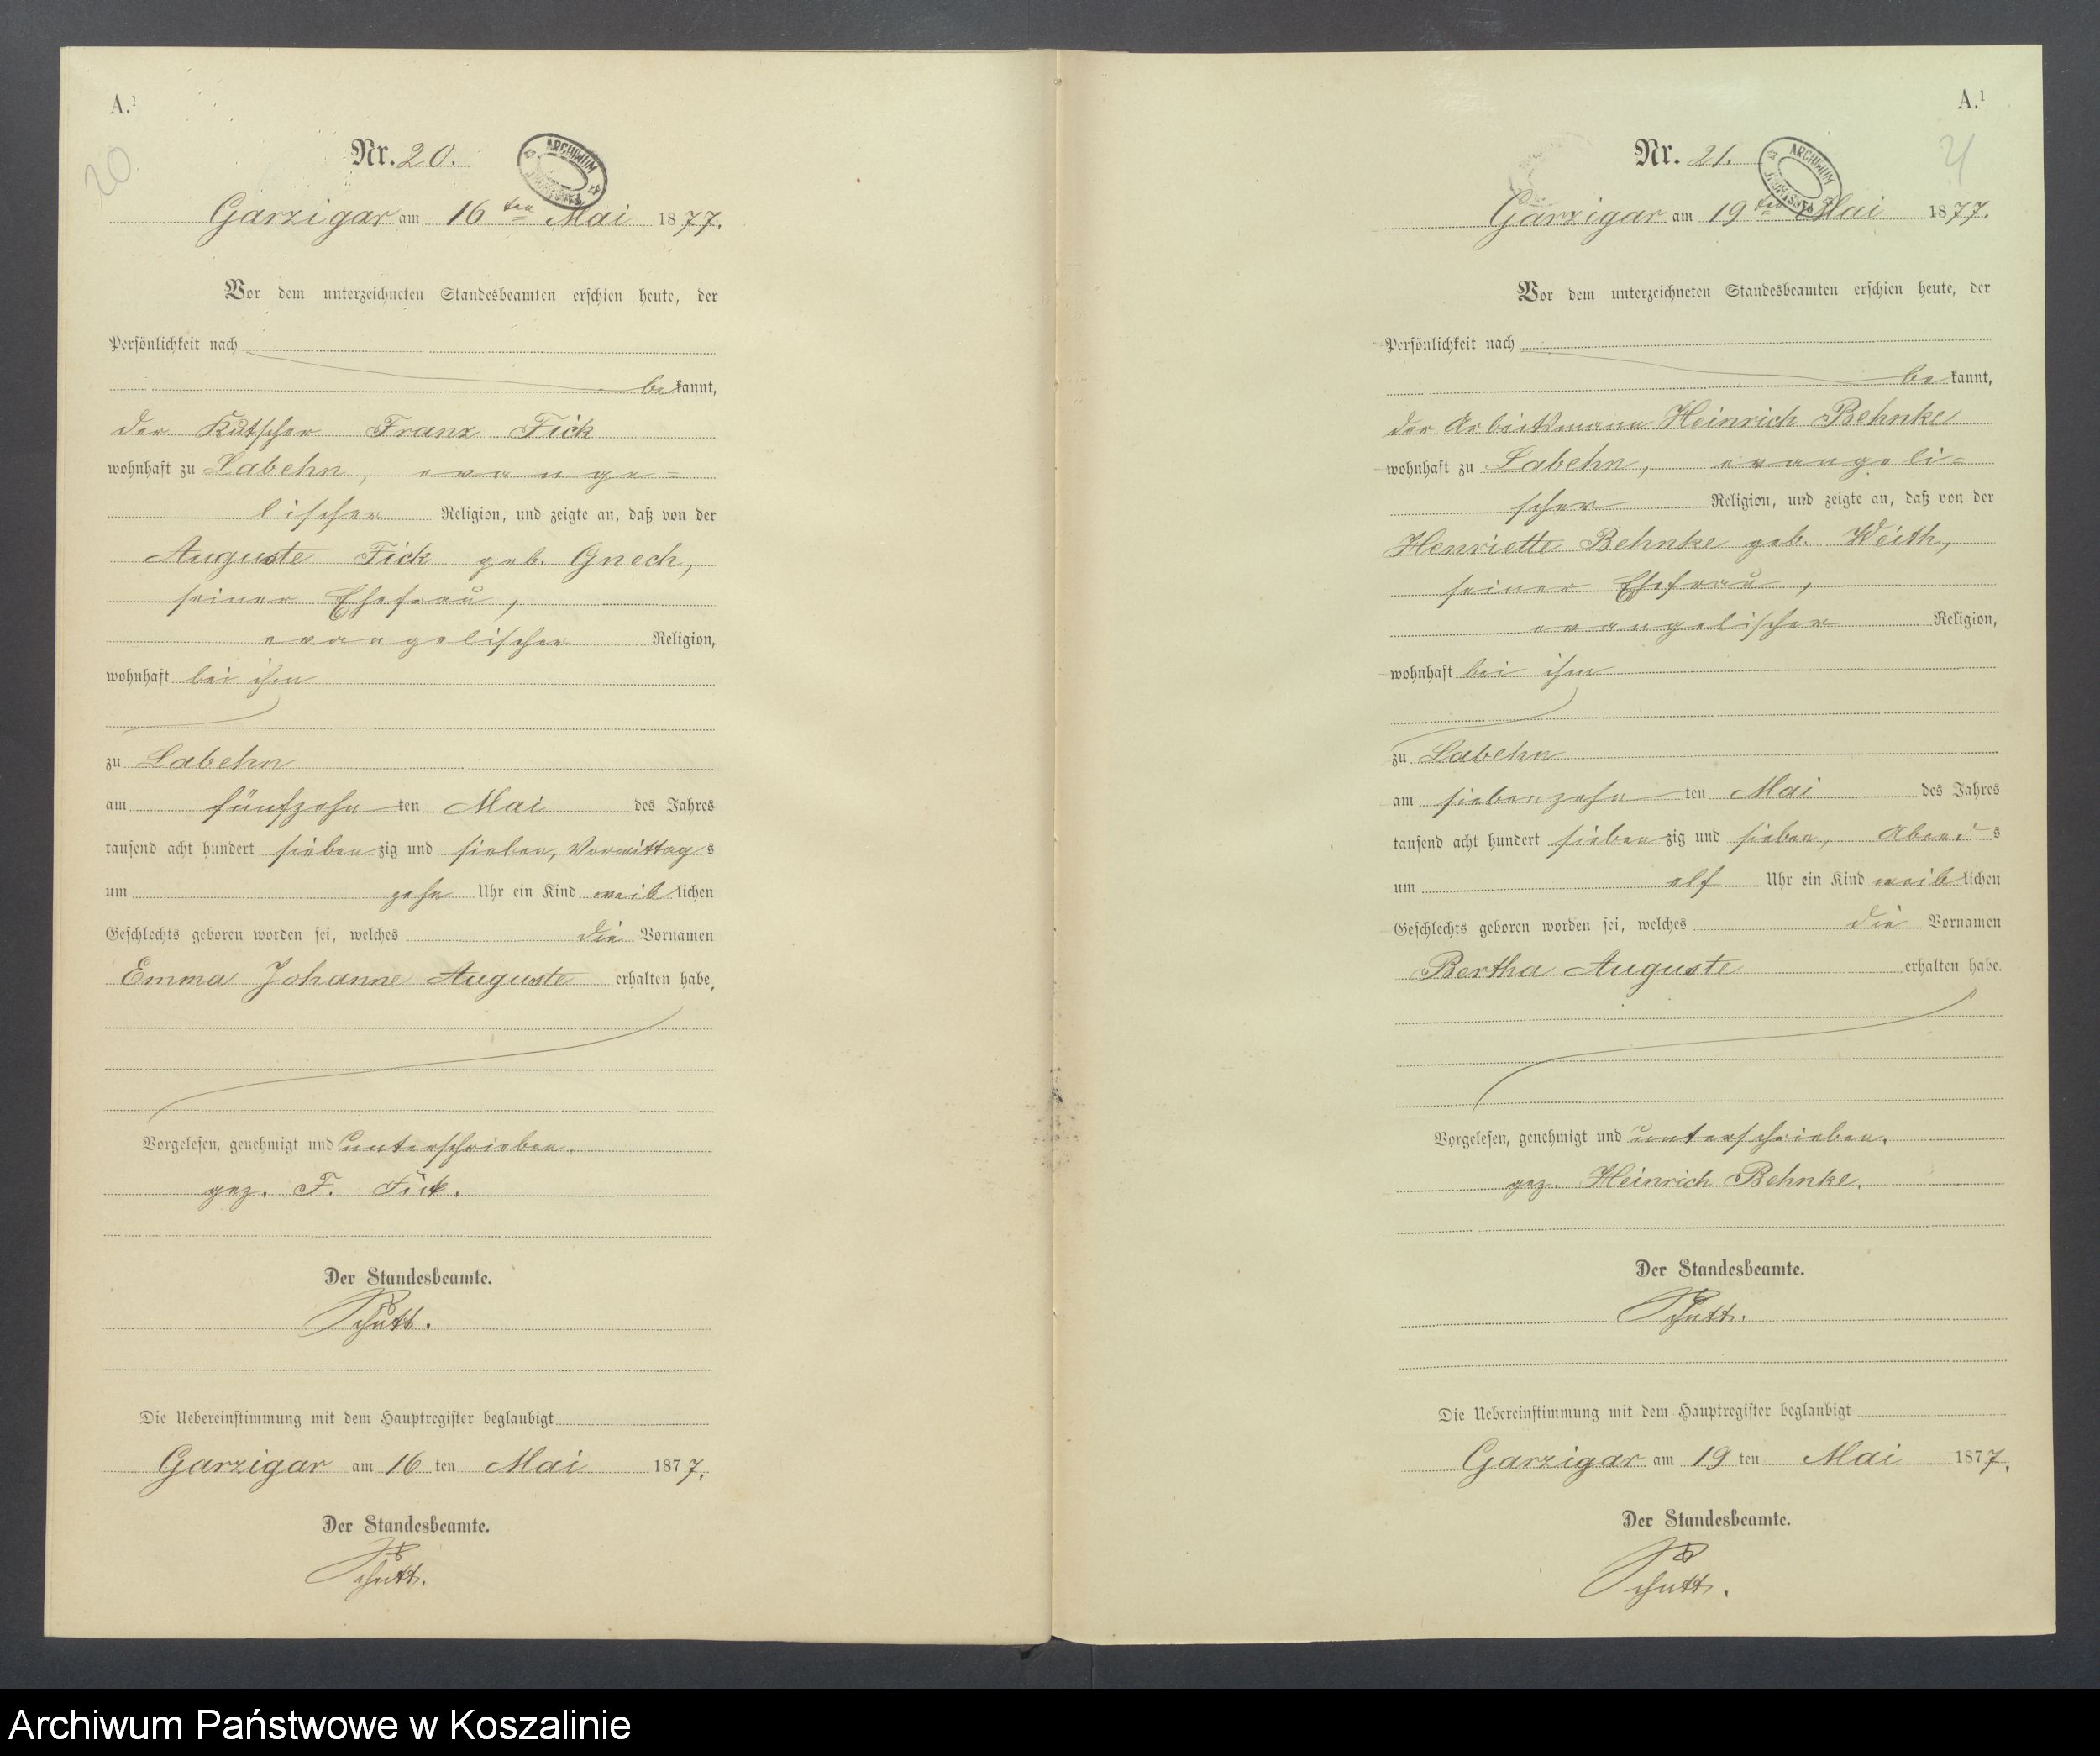 A.¹
20
Nr. 20.
ARCHIWUM
Garzigar am 16ten Mai 1877.
Vor dem unterzeichneten Standesbeamten erschien heute, der
Persönlichkeit nach
bekannt,
der Kutscher Franz Fick
wohnhaft zu Labehn, evange=
lischer Religion, und zeigte an, daß von der
Auguste Fick geb. Gnech,
seiner Ehefrau,
evangelischer Religion,
wohnhaft bei ihm
zu Labehn
am fünfzehnten Mai des Jahres
tausend acht hundert siebenzig und sieben, Vormittags
um zehn Uhr ein Kind weiblichen
Geschlechts geboren worden sei, welches die Vornamen
Emma Johanne Auguste erhalten habe,
Vorgelesen, genehmigt und unterschrieben.
gez. F. Fick.
Der Standesbeamte.
Schutt.
Die Uebereinstimmung mit dem Hauptregister beglaubigt
Garzigar am 16 ten Mai 1877.
Der Standesbeamte.
Schutt.
A.¹
21
Nr. 21.
ARCHIWUM
Garzigar am 19ten Mai 1877.
Vor dem unterzeichneten Standesbeamten erschien heute, der
Persönlichkeit nach
bekannt,
der Arbeitsmann Heinrich Behnke
wohnhaft zu Labehn, evangeli=
scher Religion, und zeigte an, daß von der
Henriette Behnke geb. Weith,
seiner Ehefrau,
evangelischer Religion,
wohnhaft bei ihm
zu Labehn
am siebenzehnten Mai des Jahres
tausend acht hundert siebenzig und sieben, Abends
um elf Uhr ein Kind weiblichen
Geschlechts geboren worden sei, welches die Vornamen
Bertha Auguste erhalten habe.
Vorgelesen, genehmigt und unterschrieben.
gez. Heinrich Behnke.
Der Standesbeamte.
Schutt.
Die Uebereinstimmung mit dem Hauptregister beglaubigt
Garzigar am 19 ten Mai 1877.
Der Standesbeamte.
Schutt.
Archiwum Państwowe w Koszalinie